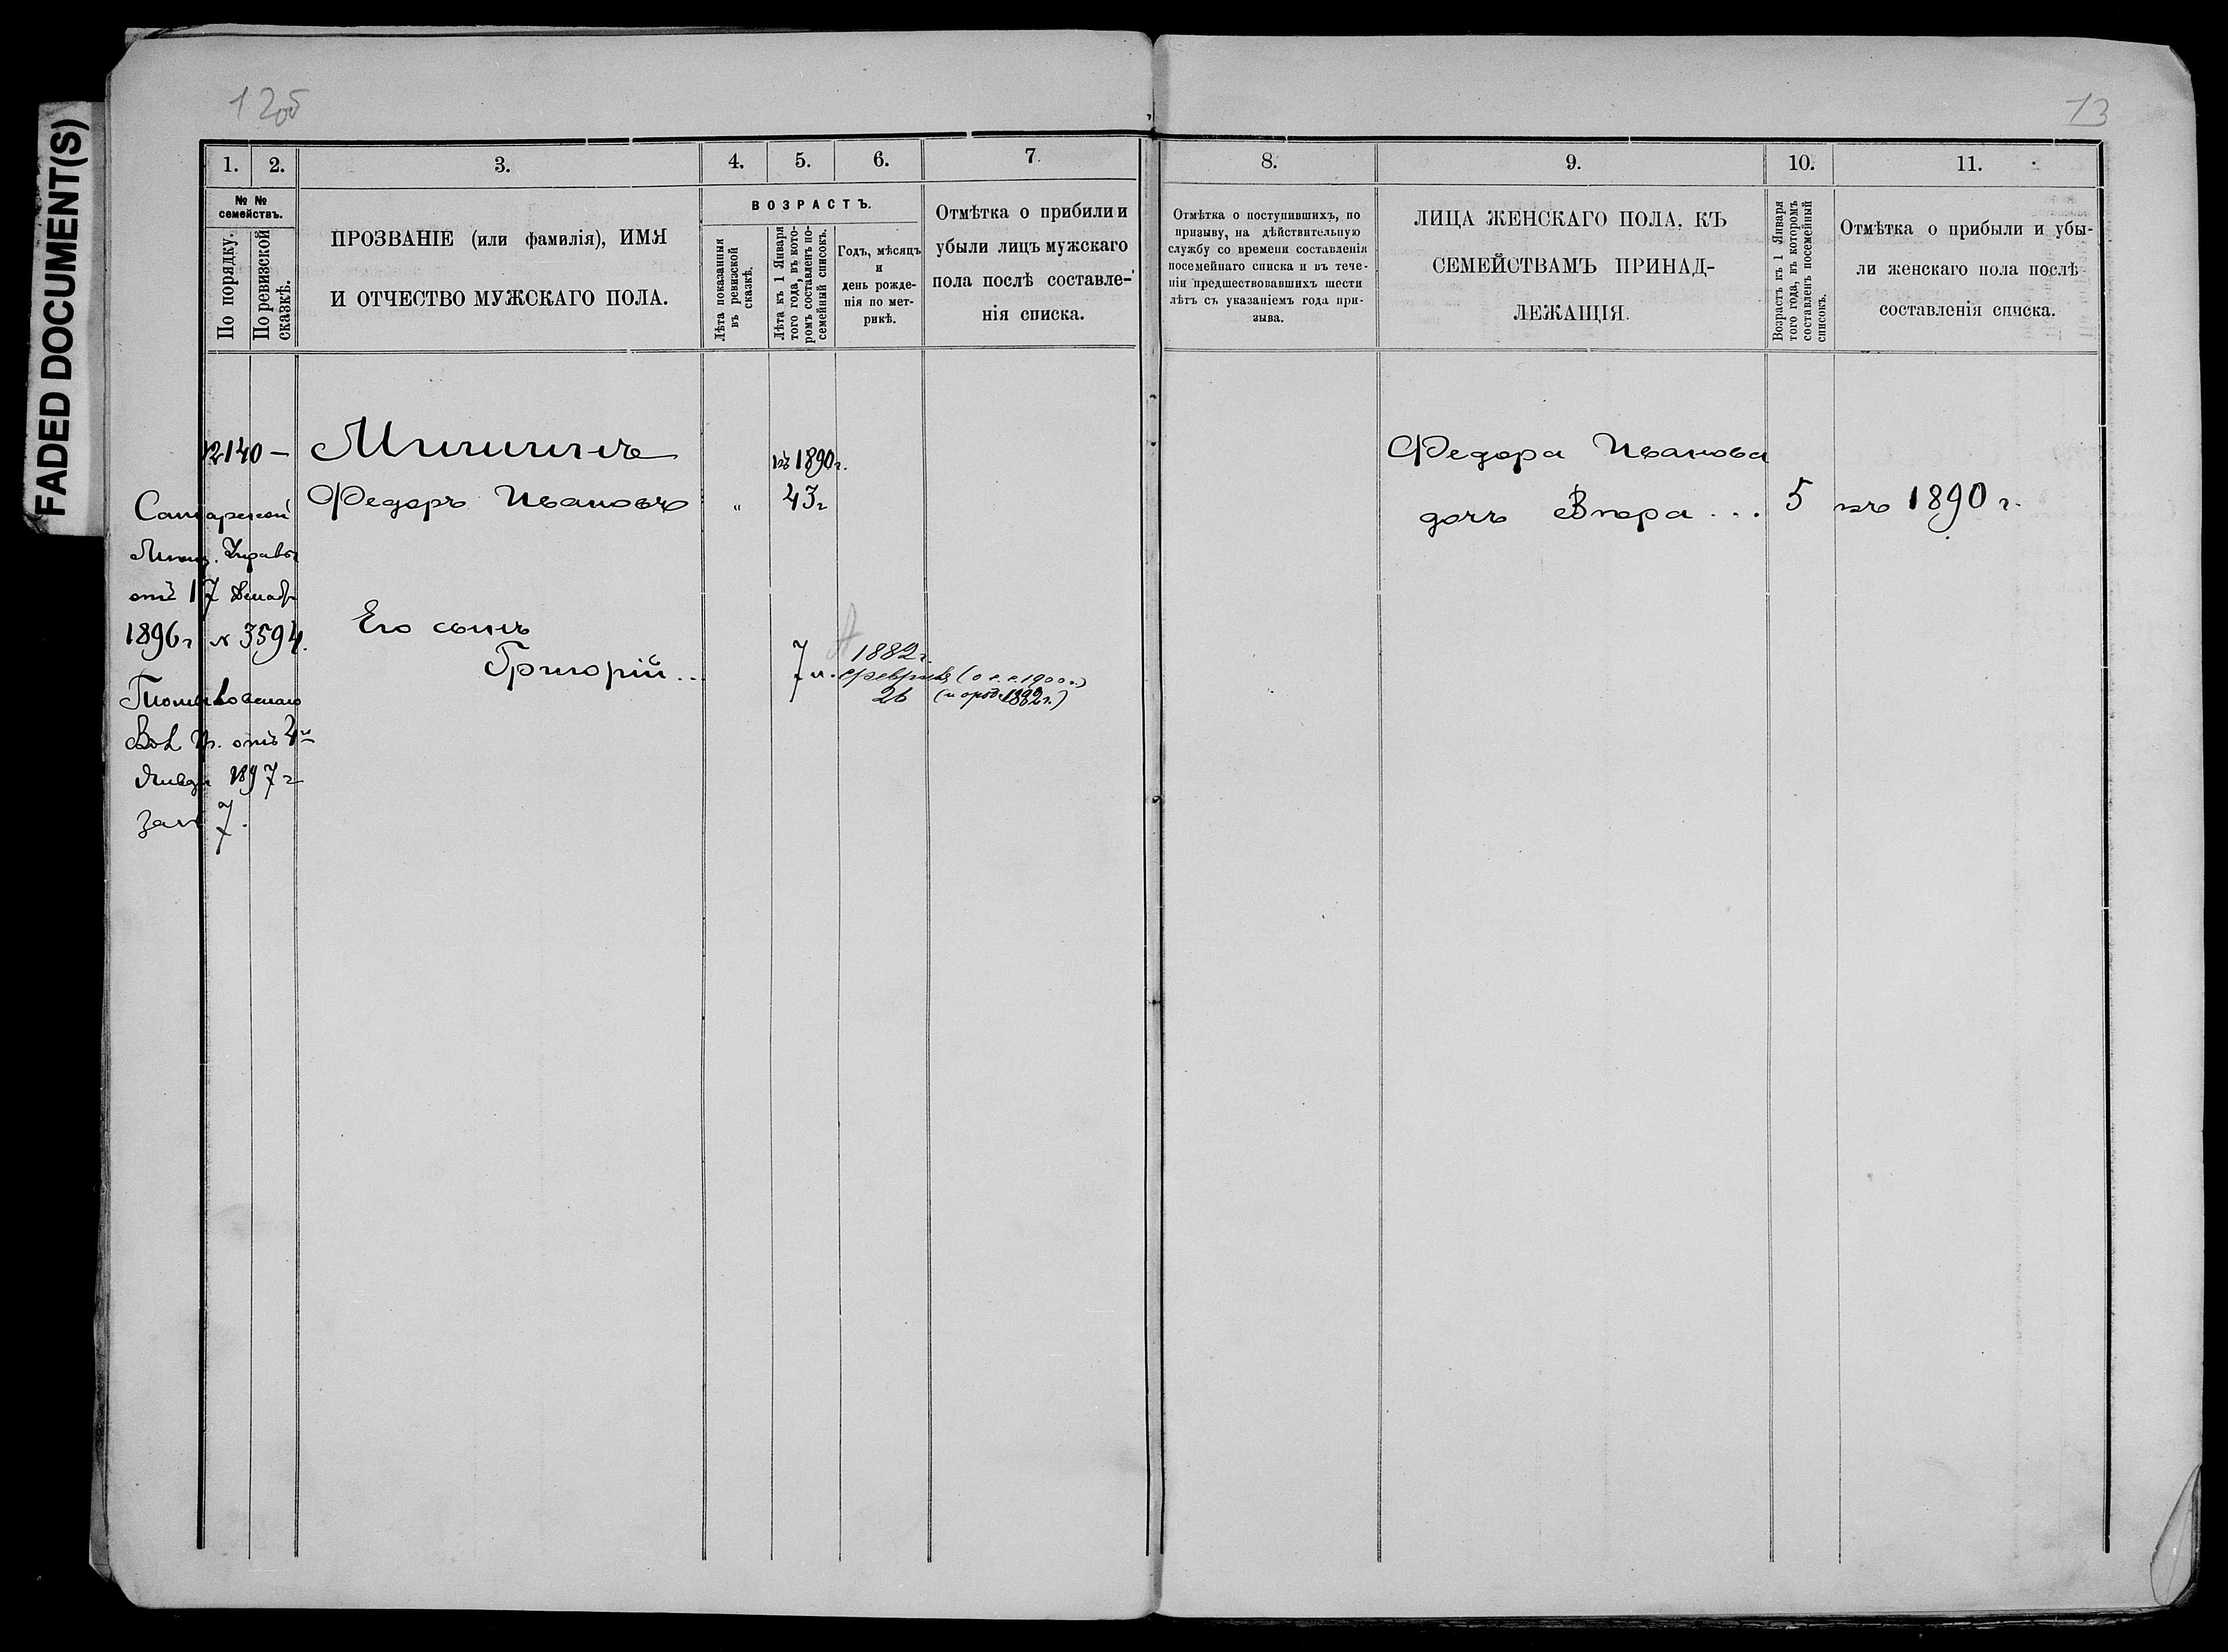 FADED DOCUMENT(S)
12об
13
1.
2.
3.
4.
5.
6.
7.
8.
9.
10.
11.
№ №
семействъ.
По порядку.
По ревизской
сказкѣ.
ПРОЗВАНІЕ (или фамилія), ИМЯ
И ОТЧЕСТВО МУЖСКАГО ПОЛА.
ВОЗРАСТЪ.
Лѣта показанныя
въ ревизской
сказкѣ.
Лѣта къ 1 Января
того года, въ кото-
ромъ составленъ по-
семейный списокъ.
Годъ, мѣсяцъ
и
день рожде-
нія по мет-
рикѣ.
Отмѣтка о прибили и
убыли лицъ мужскаго
пола послѣ составле-
нія списка.
Отмѣтка о поступившихъ, по
призыву, на дѣйствительную
службу со времени составленія
посемейнаго списка и въ тече-
ніи предшествовавшихъ шести
лѣтъ съ указаніемъ года при-
зыва.
ЛИЦА ЖЕНСКАГО ПОЛА, КЪ
СЕМЕЙСТВАМЪ ПРИНАД-
ЛЕЖАЩІЯ.
Возрастъ къ 1 Января
того года, въ которомъ
составленъ посемейный
списокъ.
Отмѣтка о прибыли и убы-
ли женскаго пола послѣ
составленія списка.
2140 —
Мишинъ
къ 1890 г.
Федоръ Ивановъ
„
43 г
Самарской
Управы
отъ 17 Декабр
1896 г № 3594.
Его сынъ
Григорій ..
7 л.
1882 г.
Февраля
26
(о с. с. 1900 г.)
Вол. Пр. отъ 4го
Январ 1897 г
за № 7.
Федора Иванова
дочь Вѣра ...
5
къ 1890 г.